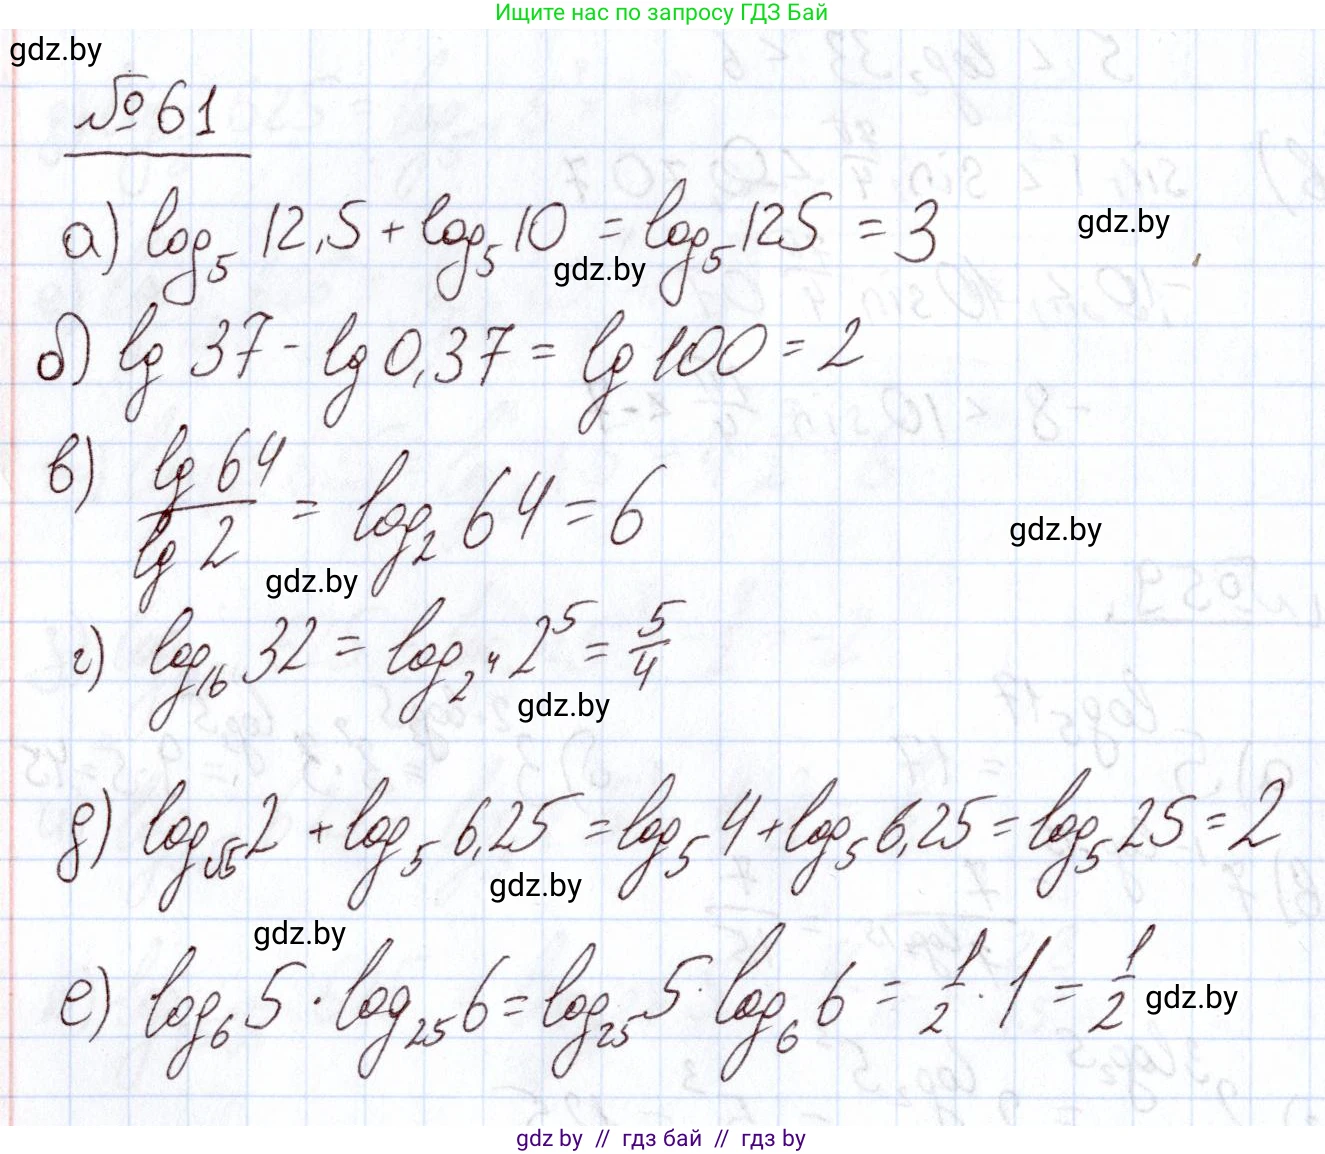 Ищите нас по запросу ГДЗ Бай
gdz.by
№ 61
а) log₅ 12,5 + log₅ 10 = log₅ 125 = 3
gdz.by
gdz.by
б) lg 37 - lg 0,37 = lg 100 = 2
в) lg 64 / lg 2 = log₂ 64 = 6
gdz.by
gdz.by
г) log₁₆ 32 = log_{2⁴} 2⁵ = 5/4
gdz.by
д) log_{√5} 2 + log₅ 6,25 = log₅ 4 + log₅ 6,25 = log₅ 25 = 2
gdz.by
gdz.by
е) log₆ 5 · log₂₅ 6 = log₂₅ 5 · log₆ 6 = 1/2 · 1 = 1/2
gdz.by
gdz by // гдз бай // гдз by